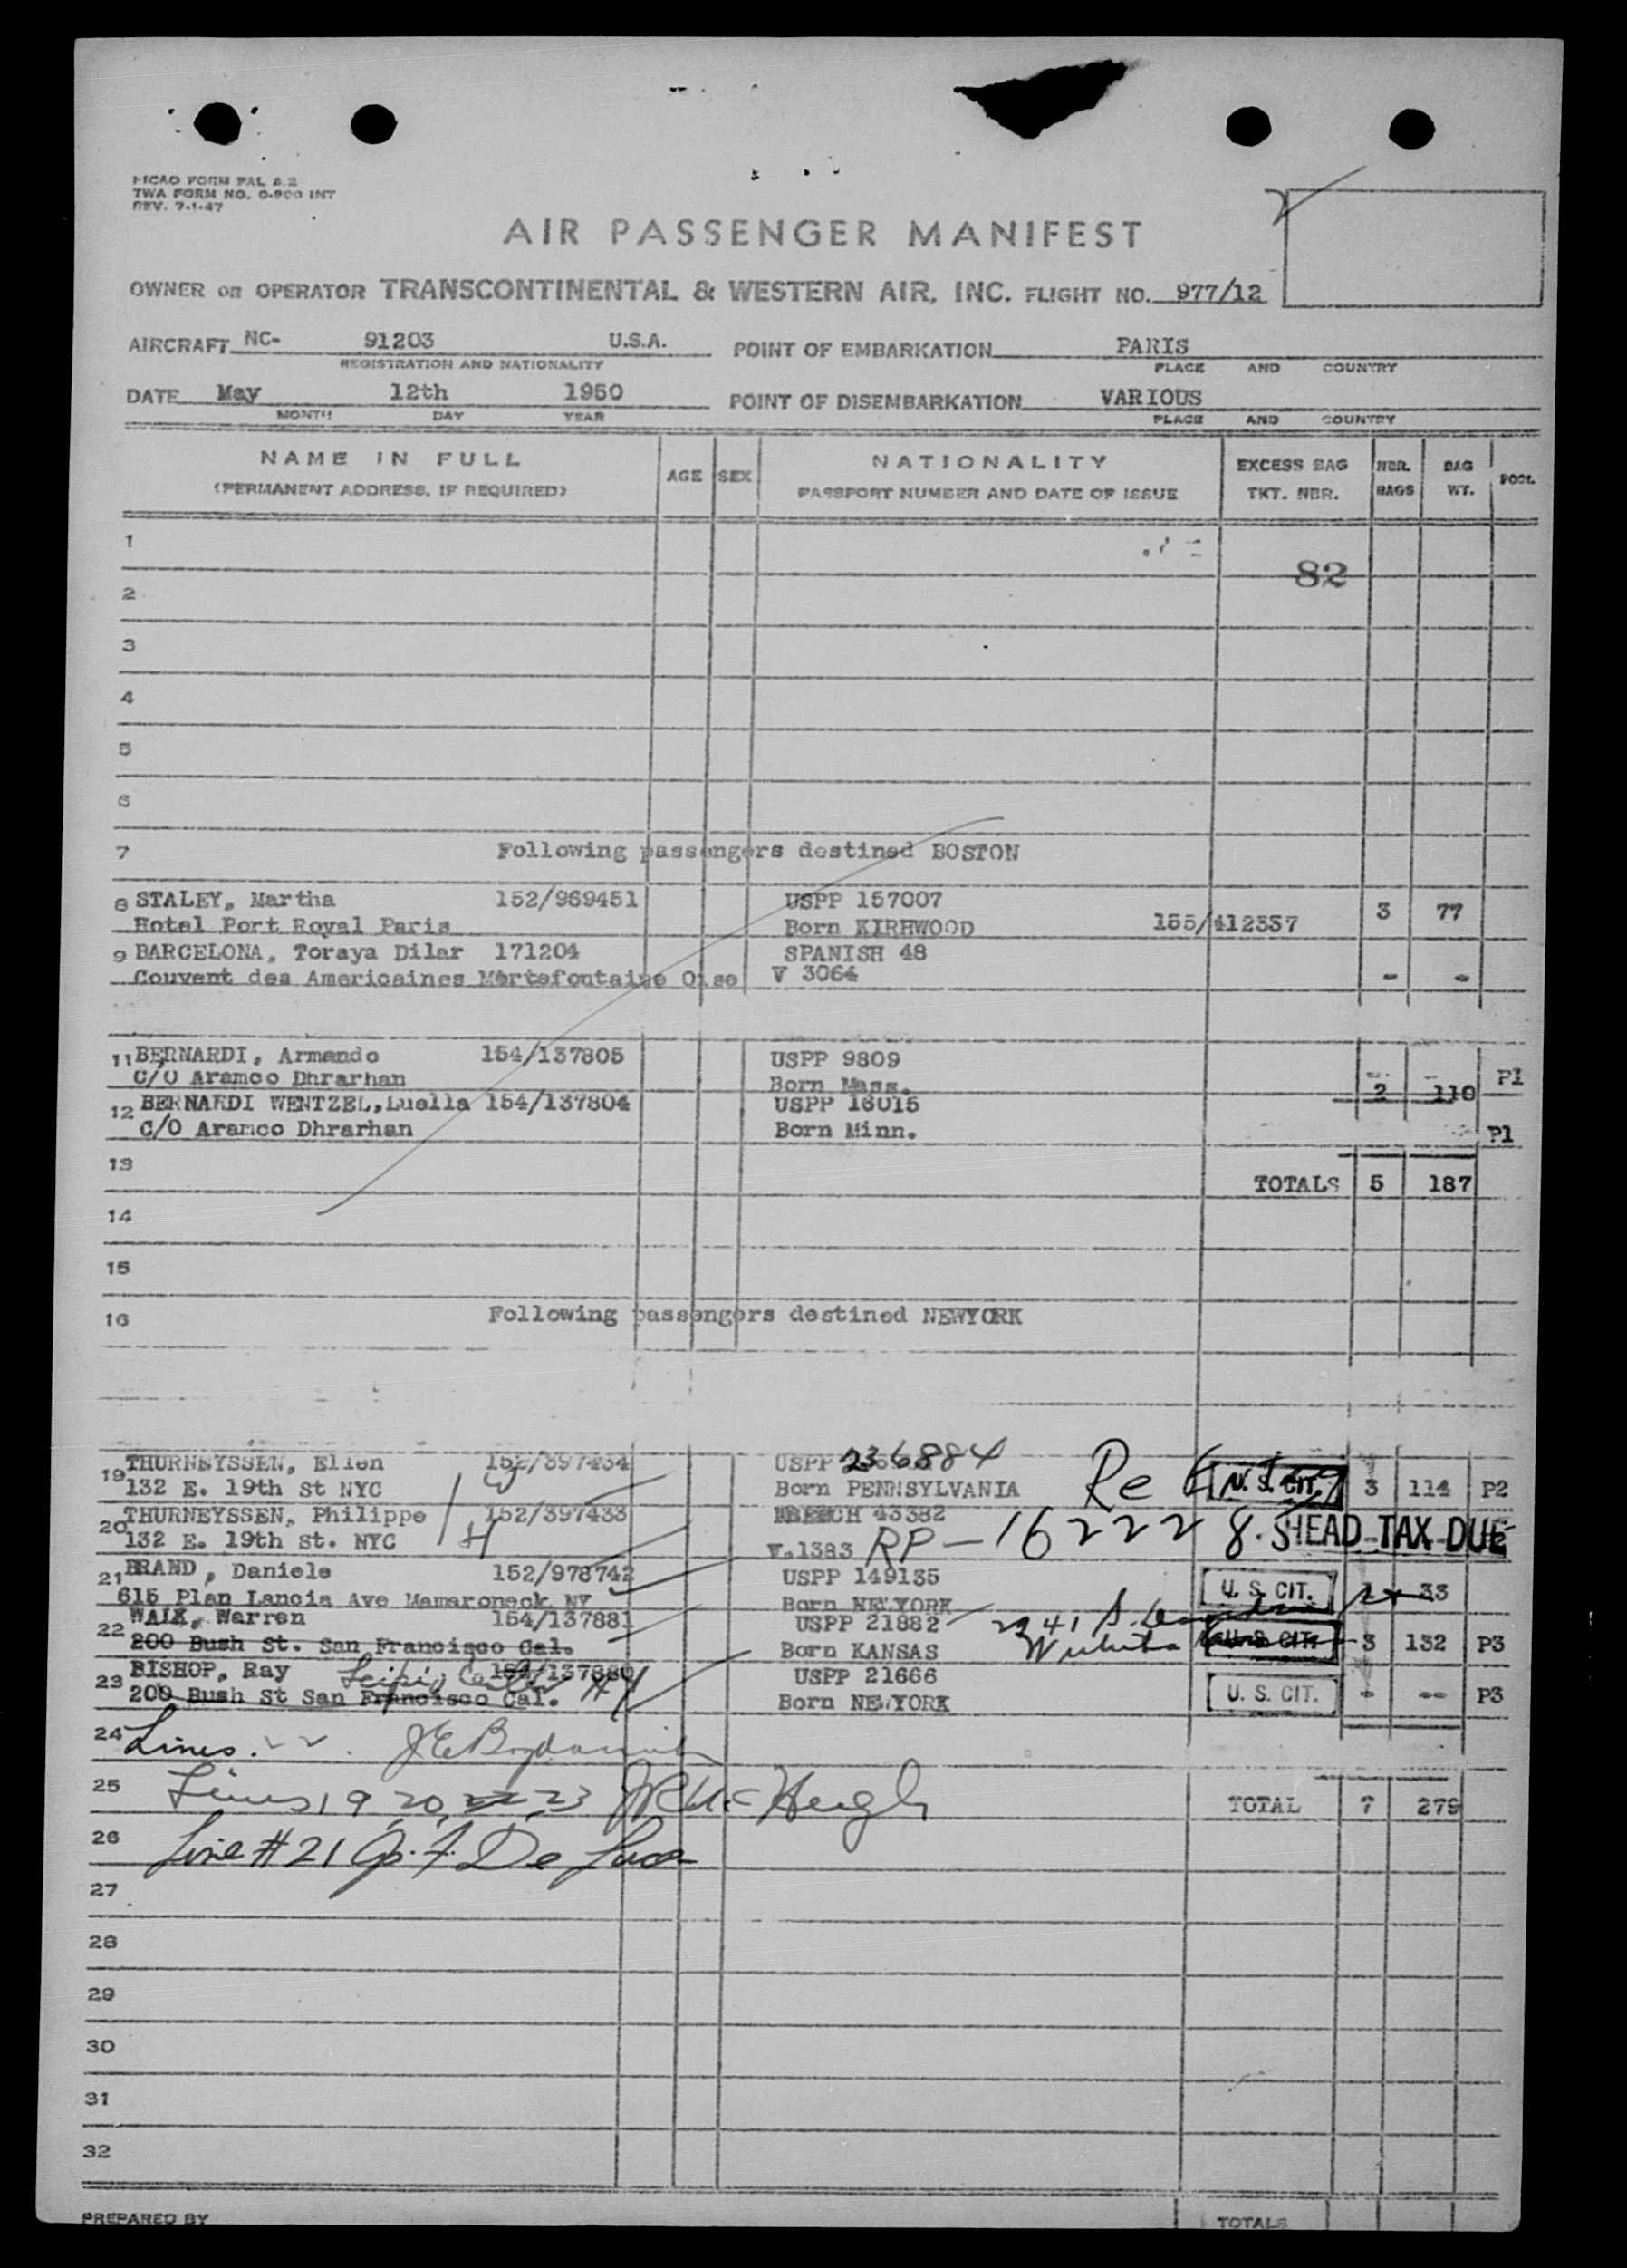 PICAO FORM FAL 6.2
TWA FORM NO. O-900 INT
REV. 7-1-47
AIR PASSENGER MANIFEST
OWNER OR OPERATOR TRANSCONTINENTAL & WESTERN AIR, INC. FLIGHT NO. 977/12
AIRCRAFT NC- 91203 U.S.A. POINT OF EMBARKATION PARIS
REGISTRATION AND NATIONALITY PLACE AND COUNTRY
DATE May 12th 1950 POINT OF DISEMBARKATION VARIOUS
MONTH DAY YEAR PLACE AND COUNTRY
NAME IN FULL AGE SEX NATIONALITY EXCESS BAG NBR. BAG POOL
(PERMANENT ADDRESS, IF REQUIRED) PASSPORT NUMBER AND DATE OF ISSUE TKT. NBR. BAGS WT.
1
82
2
3
4
5
6
7 Following passengers destined BOSTON
8 STALEY, Martha 152/969451 USPP 157007 3 77
Hotel Port Royal Paris Born KIRHWOOD 155/412337
9 BARCELONA, Toraya Dilar 171204 SPANISH 48
Couvent des Americaines Mortefontaine Oise V 3064 - -
11 BERNARDI, Armando 154/137805 USPP 9809
C/O Aramco Dhrarhan Born Mass. 2 110 P1
12 BERNARDI WENTZEL, Luella 154/137804 USPP 16015
C/O Aramco Dhrarhan Born Minn. P1
13
TOTALS 5 187
14
15
16 Following passengers destined NEWYORK
19 THURNEYSSEN, Ellen 152/397434 USPP 236884
132 E. 19th St NYC W Born PENNSYLVANIA Re U. S. CIT. 3 114 P2
20 THURNEYSSEN, Philippe 152/397433 FRENCH 43382
132 E. 19th St. NYC H V.1383 RP-162228. HEAD TAX DUE
21 BRAND, Daniele 152/978742 USPP 149135
615 Plan Lancia Ave Mamaroneck NY Born NEWYORK U. S. CIT. 33
22 WALK, Warren 154/137881 USPP 21882 2341 S.
200 Bush St. San Francisco Cal. Born KANSAS Wichita U. S. CIT. 3 132 P3
23 BISHOP, Ray 154/137880 USPP 21666
200 Bush St San Francisco Cal. NY Born NEWYORK U. S. CIT. - -- P3
24 Lines.
25 Lines 19, 20, 22, 23 JR McHugh TOTAL 7 279
26 Line #21 G. F. De Luca
27
28
29
30
31
32
PREPARED BY TOTALS